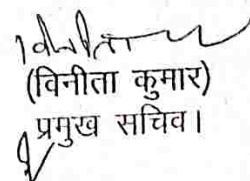 (विनीता कुमार)
प्रमुख सचिव।